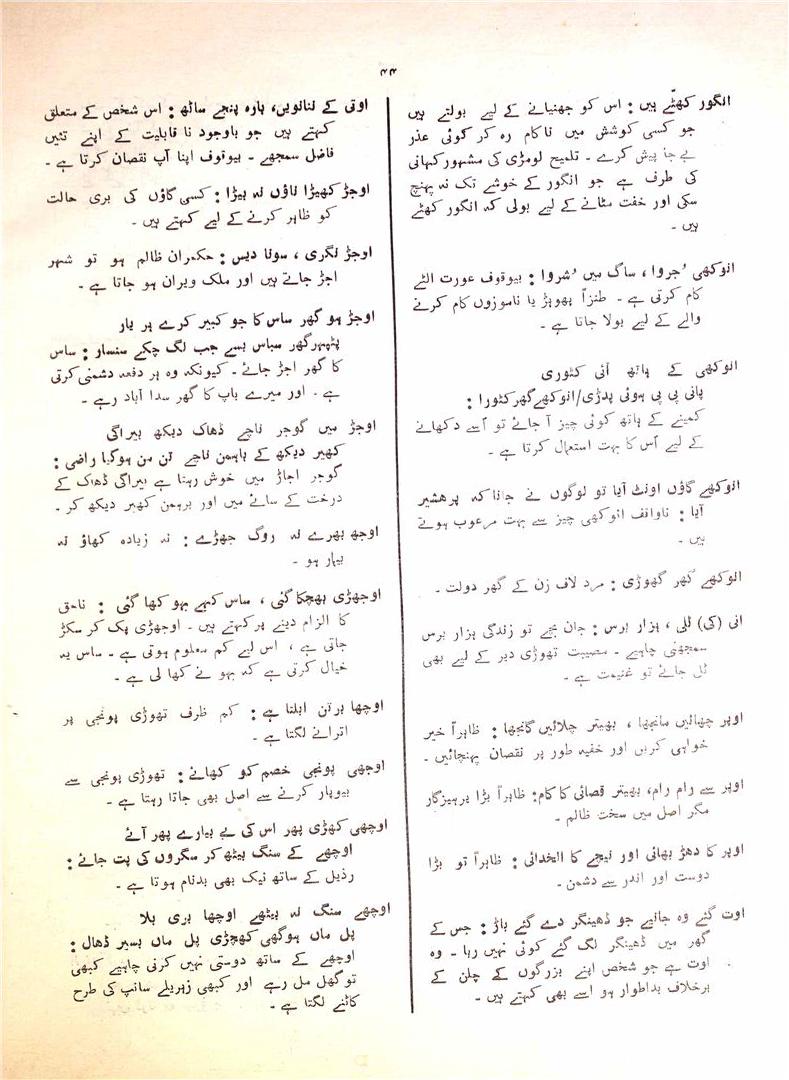 ۴۴
انگور کھٹّے ہیں : اس کو جھنیانے کے لیے بولتے ہیں
جو کسی کوشش میں ناکام رہ کر کوئی عذر
بے جا پیش کرے ۔ تلمیح لومڑی کی مشہور کہانی
کی طرف ہے جو انگور کے خوشے تک نہ پہنچ
سکی اور خفت مٹانے کے لیے بولی کہ انگور کھٹے
ہیں ۔
انوکھی جُروا ، ساگ میں شُروا : بیوقوف عورت الٹے
کام کرتی ہے ۔ طنزاً پھوہڑ یا ناموزوں کام کرنے
والے کے لیے بولا جاتا ہے ۔
انوکھی کے ہاتھ آئی کٹوری
پانی پی پی ہوئی پدڑی/انوکھے گھر کٹورا :
کمینے کے ہاتھ کوئی چیز آ جائے تو اُسے دکھانے
کے لیے اُس کا بہت استعمال کرتا ہے ۔
انوکھے گاؤں اونٹ آیا تو لوگوں نے جانا کہ پرمیشر
آیا : ناواقف انوکھی چیز سے بہت مرعوب ہوتے
ہیں ۔
انوکھے گھر گھوڑی : مرد لاف زن کے گھر دولت ۔
انی (کی) ٹلی ، ہزار برس : جان بچے تو زندگی ہزار برس
سمجھنی چاہیے ۔ مصیبت تھوڑی دیر کے لیے بھی
ٹل جائے تو غنیمت ہے ۔
اوپر چھائیں مانجھا ، بھیتر چلائیں گانجھا : ظاہراً خیر
خواہی کریں اور خفیہ طور پر نقصان پہنچائیں ۔
اوپر سے رام رام، بھیتر قصائی کا کام : ظاہراً بڑا پرہیزگار
مگر اصل میں سخت ظالم ۔
اوپر کا دھڑ بھائی اور نیچے کا الخدائی : ظاہراً تو بڑا
دوست اور اندر سے دشمن ۔
اوت گئے وہ جانیے جو ڈھینگر دے گئے باڑ : جس کے
گھر میں ڈھینگر لگ گئے کوئی نہیں رہا ۔ وہ
اوت ہے جو شخص اپنے بزرگوں کے چلن کے
برخلاف بداطوار ہو اسے بھی کہتے ہیں ۔
اوتی کے ننانویں، بارہ پنجے ساٹھ : اس شخص کے متعلق
کہتے ہیں جو باوجود نا قابلیت کے اپنے تئیں
فاضل سمجھے ۔ بیوقوف اپنا آپ نقصان کرتا ہے ۔
اوجڑ کھیڑا ناؤں نہ بیڑا : کسی گاؤں کی بری حالت
کو ظاہر کرنے کے لیے کہتے ہیں ۔
اوجڑ نگری ، سونا دیس : حکمران ظالم ہو تو شہر
اجڑ جاتے ہیں اور ملک ویران ہو جاتا ہے ۔
اوجڑ ہو گھر ساس کا جو کبیر کرے ہر بار
پٹیہر گھر سباس بسے جب لگ چکے سنسار : ساس
کا گھر اجڑ جائے ۔ کیونکہ وہ ہر دفعہ دشمنی کرتی
ہے ۔ اور میرے باپ کا گھر سدا آباد رہے ۔
اوجڑ میں گوجر ناچے ڈھاک دیکھ بیراگی
کھیر دیکھ کے باہمن ناچے تن من ہوگیا راضی :
گوجر اجاڑ میں خوش رہتا ہے بیراگی ڈھاک کے
درخت کے سائے میں اور برہمن کھیر دیکھ کر ۔
اوجھ بھرے نہ روگ جھڑے : نہ زیادہ کھاؤ نہ
بیمار ہو ۔
اوجھڑی پھچکا گئی ، ساس کہے بہو کھا گئی : ناحق
کا الزام دینے پر کہتے ہیں ۔ اوجھڑی پک کر سکڑ
جاتی ہے ، اس لیے کم معلوم ہوتی ہے ۔ ساس یہ
خیال کرتی ہے کہ بہو نے کھا لی ہے ۔
اوچھا برتن ابلتا ہے : کم ظرف تھوڑی پونجی پر
اترانے لگتا ہے ۔
اوچھی پونجی خصم کو کھائے : تھوڑی پونجی سے
بیوپار کرنے سے اصل بھی جاتا رہتا ہے ۔
اوچھی کھڑی پھر اس کی بے بیارے پھر آئے
اوچھے کے سنگ بیٹھ کر سگروں کی پت جائے :
رذیل کے ساتھ نیک بھی بدنام ہوتا ہے ۔
اوچھے سنگ نہ بیٹھے اوچھا بری بلا
پل ماں ہوگھی کھچڑی پل ماں بسیر ڈھال :
اوچھے کے ساتھ دوستی نہیں کرنی چاہیے کبھی
تو گھل مل رہے اور کبھی زہریلے سانپ کی طرح
کاٹنے لگتا ہے ۔